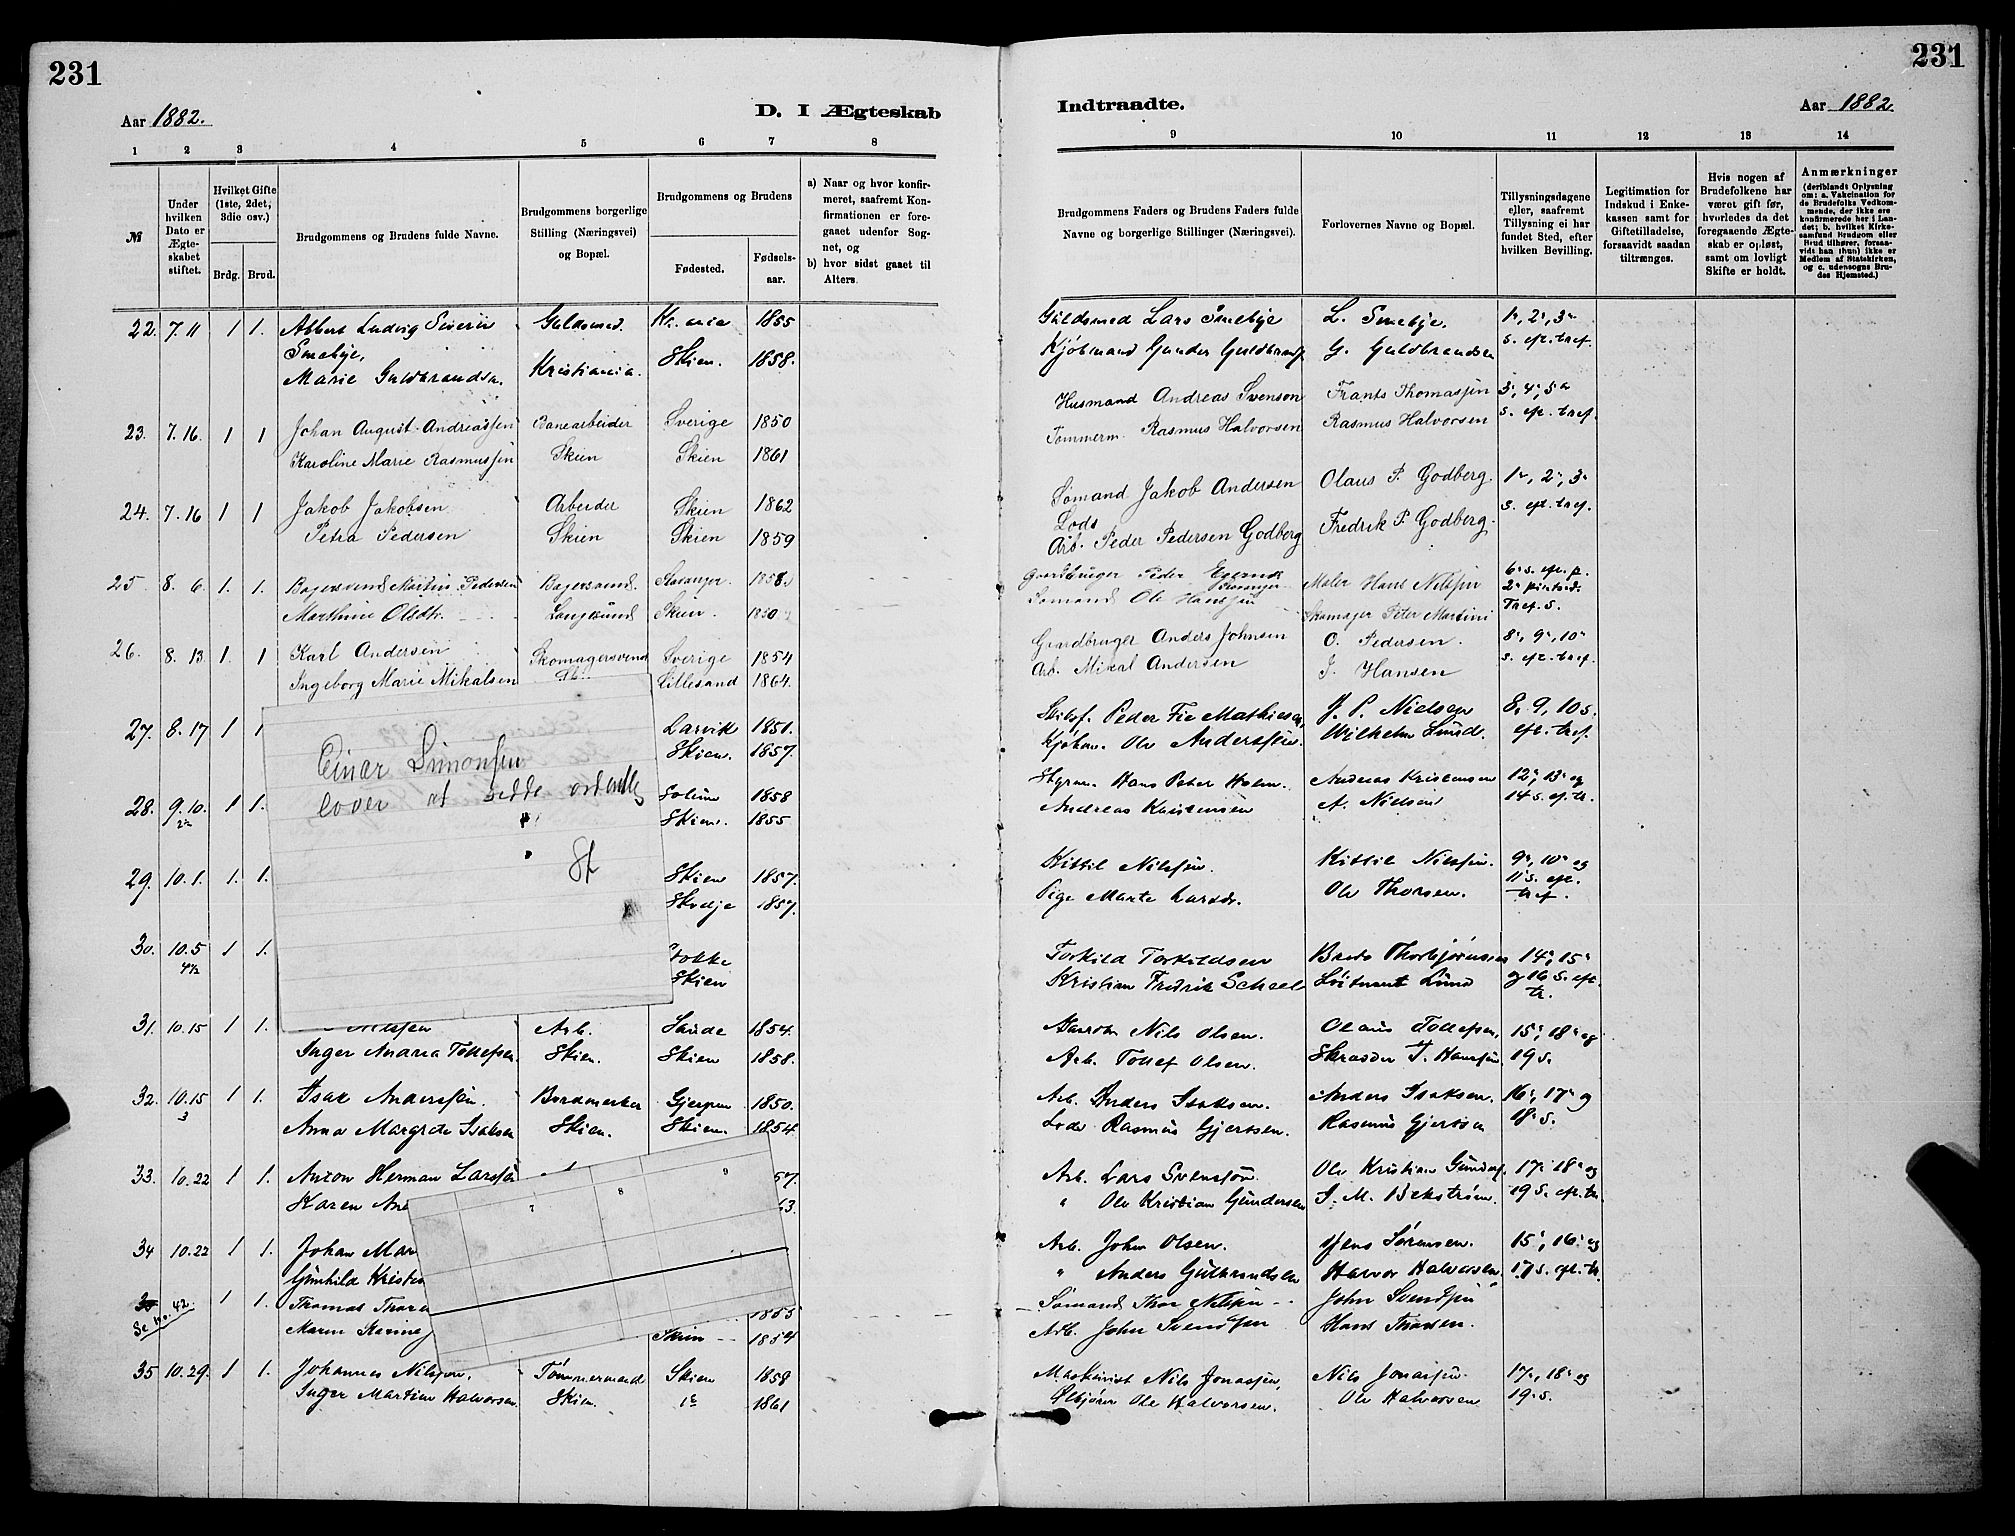 231
231
Aar 1882.
D. I Ægteskab
Indtraadte.
Aar 1882.
1 2 3 4 5 6 7 8
9 10 11 12 13 14
№
Under hvilken Dato er Ægteskabet stiftet.
Hvilket Gifte (1ste, 2det, 3die osv.)
Brdg. Brud.
Brudgommens og Brudens fulde Navne.
Brudgommens borgerlige Stilling (Næringsvei) og Bopæl.
Brudgommens og Brudens
Fødested.
Fødselsaar.
a) Naar og hvor konfirmeret, saafremt Konfirmationen er foregaaet udenfor Sognet, og
b) hvor sidst gaaet til Alters.
Brudgommens Faders og Brudens Faders fulde Navne og borgerlige Stillinger (Næringsvei).
Forlovernes Navne og Bopæl.
Tillysningsdagene eller, saafremt Tillysning ei har fundet Sted, efter hvilken Bevilling.
Legitimation for Indskud i Enkekassen samt for Giftetilladelse, forsaavidt saadan tiltrænges.
Hvis nogen af Brudefolkene har været gift før, hvorledes da det foregaaende Ægteskab er opløst, samt om lovligt Skifte er holdt.
Anmærkninger (deriblandt Oplysning om: a. Vakcination for de Brudefolks Vedkommende, der ikke ere konfirmerede her i Landet; b. hvilket Kirkesamfund Brudgom eller Brud tilhører, forsaavidt han (hun) ikke er Medlem af Statskirken, og c. udensogns Brudes Hjemsted.)
22. 7. 11 1 1. Albert Ludvig Severin Guldsmed. Kr.ania 1855 Guldsmed Lars Smebye L. Smebye. 1", 2", 3"
Smebye,
Marie Guldbrandsn. Kristiania. Skien. 1858. Kjøbmand Gunder Guldbrands G. Guldbrandsen s. eft. tref.
23. 7. 16. 1 1 Johan August Andreassen Banearbeider Sverige 1850 Husmand Andreas Svenson Frants Thomassen 3", 4", 5"
Karoline Marie Rasmussen Skien Skien 1861 Tømmerm. Rasmus Halvorsen Rasmus Halvorsen s. eft. tref.
24. 7. 16 1 1 Jakob Jakobsen Arbeider Skien 1862 Sømand Jakob Andersen Olaus P. Godberg. 1", 2", 3"
Petra Pedersen Skien Skien 1859 Lods
Arb. Peder Pedersen Godberg Fredrik P. Godberg. s. eft. tref.
25. 8. 6. 1. 1. Bagersvend Martin Pedersen Bagersvend. Stavanger. 1858. Gaardbruger Peder Maler Hans Nilssen 6" s. eft. p.
Marthine Olsdtr. Langesund Skien. Sømand Ole Hanssen Skomager Peter Martini Tref. S.
26. 8. 13. 1. 1 Karl Andersen Skomagersvend Sverige 1854 Gaardbruger Anders Johnsen O. Pedersen. 8", 9", 10"
Ingeborg Marie Mikalsen Lillesand 1864. Arb. Mikal Andersen J. Hansen s. eft. tref.
27. 8. 17 1 1 Larvik 1851. Peder Fie Mathiesen, J. P. Nielsen 8, 9, 10 s.
Skien. 1857. Kjøbm. Ole Anderssen. Wilhelm Lund. eft. tref.
Einar Simonsen
lover at sidde ordentlig
28. 9. 10. 1 1. Solum 1858 Styrm. Hans Peter Holm. Andreas Kristensen 12", 13" og
Skien. 1855 Andreas Kristensen A. Nielsen 14 s. ef. tr.
29. 10. 1. 1. 1. Skien 1857. Kittil Nilssen. Kittil Nilssen. 9", 10" og
Skedje 1857. Pige Marte Larsdr. Ole Thorsen. 11" s. eft. tref.
30. 10. 5 1 1. Torkild Torkildsen Thorbjørnsen 14", 15"
4½ Skien Kristian Fredrik Scheel Løitnant Lund og 16 s. eft. tr.
31. 10. 15 1 1. Nilssen Arb. Saude 1854. Nils Olsen. Olaus Tollefsen, 15", 18" og
Inger Maria Tollefsen Skien. Skien 1858. Arb. Tollef Olsen. Skrædder T. Hanssen 19 s.
32. 10. 15 1 1. Isak Anderssen. Bordmerker Gjerpen 1850. Arb. Anders Isaksen. Anders Isaksen. 16", 17" og
3 Anna Margrete Isaksen Skien. Skien. 1854 Lods Rasmus Gjertsen. Rasmus Gjertsen 18" s.
33. 10. 22 1 1. Anton Herman Larssen 57. Arb. Lars Svenssøn. Ole Kristian Gunders. 17" 18" og
Karen An 63. " Ole Kristian Gundersen J. M. Bekstrøm. 19 s. eft. tr.
7 8 9
34 10. 22 1 1. Johan Mar Arb. John Olsen. Jens Sørensen. 15", 16" og
Gunhild Kristen " Anders Gulbrandsen Halvor Halvorsen. 17 s. ef. tr.
35 Se No. 42. 1 1. Thomas Thor 1855 Sømand Thor Nilssen John Svendsen
Maren Karine Skien 1854 Arb. John Svendsen Hans Thorsen.
35 10. 29. 1 1. Johannes Nilssen. Tømmermand Skien 1859 Maskinist Nils Jonassen, Nils Jonassen. 17", 18" og
Inger Martine Halvorsen. Skien. 1861 Ole Halvorsen. Ole Halvorsen 19 s.